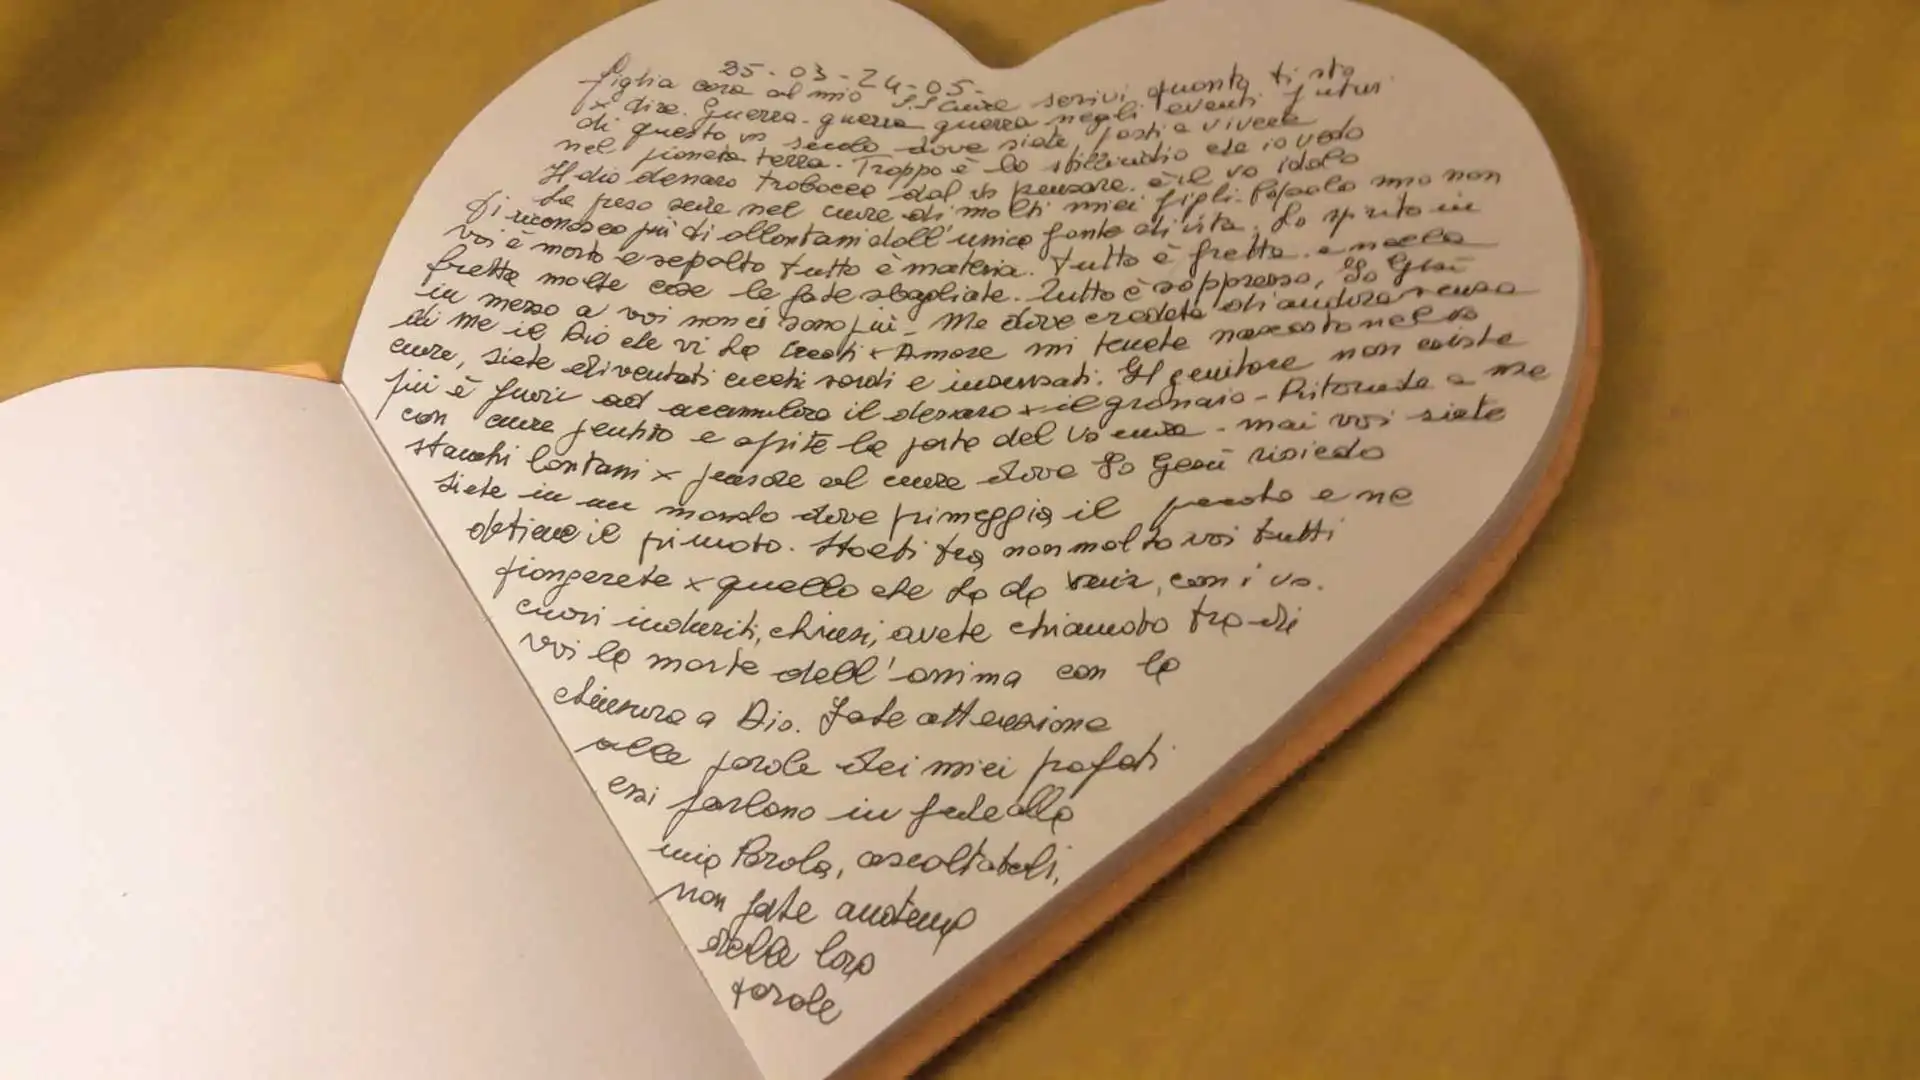 25-03-24-05-
figlia cara al mio S.S Cuore scrivi quanto ti sto
x dire. Guerra-guerra guerra negli eventi futuri
di questo vs secolo dove siete posti a vivere
nel pianeta terra. Troppo è lo stillicidio che io vedo
Il dio denaro trabocca dal vs pensare. è il vs idolo
ha preso sede nel cuore di molti miei figli. Popolo mio non
ti riconosco più ti allontani dall'unica fonte di vita. Lo spirito in
voi è morto e sepolto tutto è materia. Tutto è fretta. e nella
fretta molte cose le fate sbagliate. Tutto è soppresso, Io Gesù
in mezzo a voi non ci sono più- Ma dove credete di andare senza
di Me il Dio che vi ha Creati x Amore mi tenete nascosto nel vs
cuore, siete diventati ciechi sordi e insensati. Il genitore non esiste
più è fuori ad accumulare il denaro x il granaio- Ritornate a me
con cuore pentito e aprite le porte del vs cuore- mai voi siete
stanchi lontani x pensare al cuore dove Io Gesù risiedo
siete in un mondo dove primeggia il peccato e ne
detiene il primato. Stolti tra non molto voi tutti
piangerete x quello che ha da venir, con i vs.
cuori induriti, chiusi, avete chiamato tra di
voi la morte dell'anima con la
chiusura a Dio. Fate attenzione
alle parole dei miei profeti
essi parlano in fede alla
mia Parola, ascoltateli,
non fate anatema
delle loro
parole